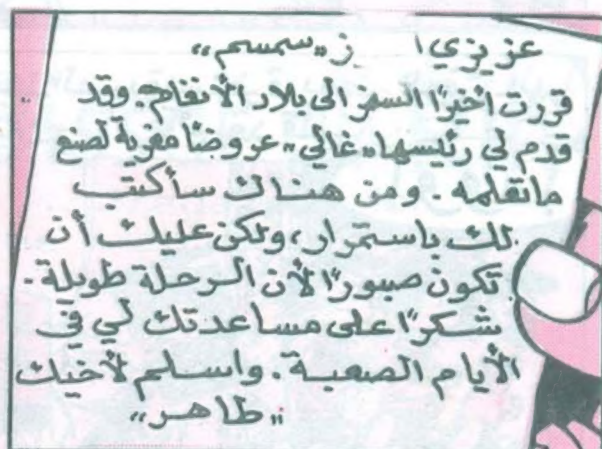 عزيزي ز «سمسم»
قررت أخيرًا السفر الى بلاد الأنغام. وقد
قدم لي رئيسها «غالي» عروضًا مغرية لصنع
ماتقلمه. ومن هناك سأكتب
لك باستمرار، ولكن عليك أن
تكون صبورًا لأن الرحلة طويلة.
شكرًا على مساعدتك لي في
الأيام الصعبة. واسلم لأخيك
«طاهر»